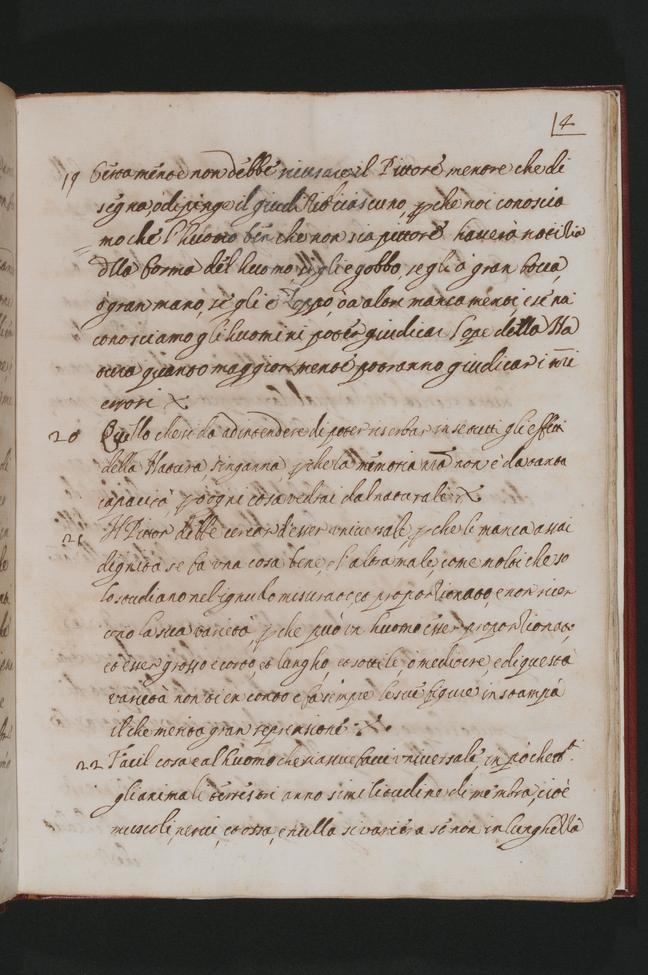 4
19 Certamente non debbe ricusare il Pittore mentre che di
segna, o dipinge il giuditio di ciascuno, pche noi conoscia
mo che l'huomo ben che non sia pittore haverà notitia
dlla forma del huomo s'egli e gobbo, se gli à gran bocca,
ò gran mano, se gli è Zoppo, o a altri mancamenti, e se noi
conosciamo gli huomini poter giudicar l'ope della Na
tura quanto maggiormente potranno giudicar i nri
errori
20 Quello che si da ad intendere di poter riserbar in se tutti gli effetti
della Natura, s'inganna pche la memoria nra non è da tanta
capacità, p ogni cosa vedrai dal naturale
21 Il Pittor debbe cercar d'esser universale, pche le manca assai
dignita se fa una cosa bene, e l'altra male, come molti che so
lo studiano nel ignudo misurato, e proportionato, e non ricer
cono la sua varietà, pche può un huomo esser proportionato,
et esser grosso e corto, et longho, et sottile o mediocre, e di questa
varietà non tien conto e fa sempre le sue figure in stampa
il che merita gran reprensione
22 Facil cosa e al huomo che sa farsi universale, in po che tt.
gli animali terrestri anno similitudine di membra, cioè
muscoli, nervi, et ossa, e nulla si varia se non in lunghezza